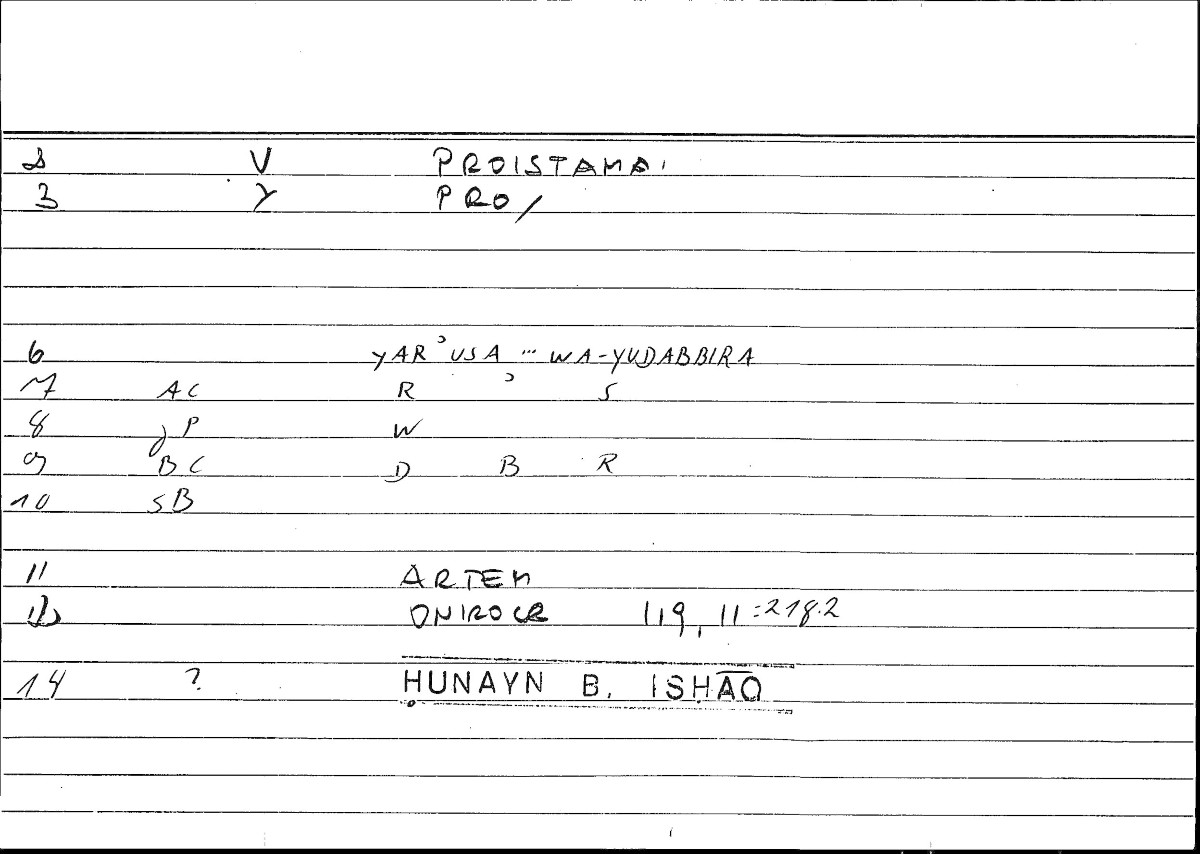 2 V PROISTAMAI
3 Y PRO/
6 YARʾUSA ... WA-YUDABBIRA
7 AC R ʾ S
8 JP W
9 BC D B R
10 SB
11 ARTEM
12 ONIROCR 119,11=218.2
14 ? ḤUNAYN B. ISḤĀQ